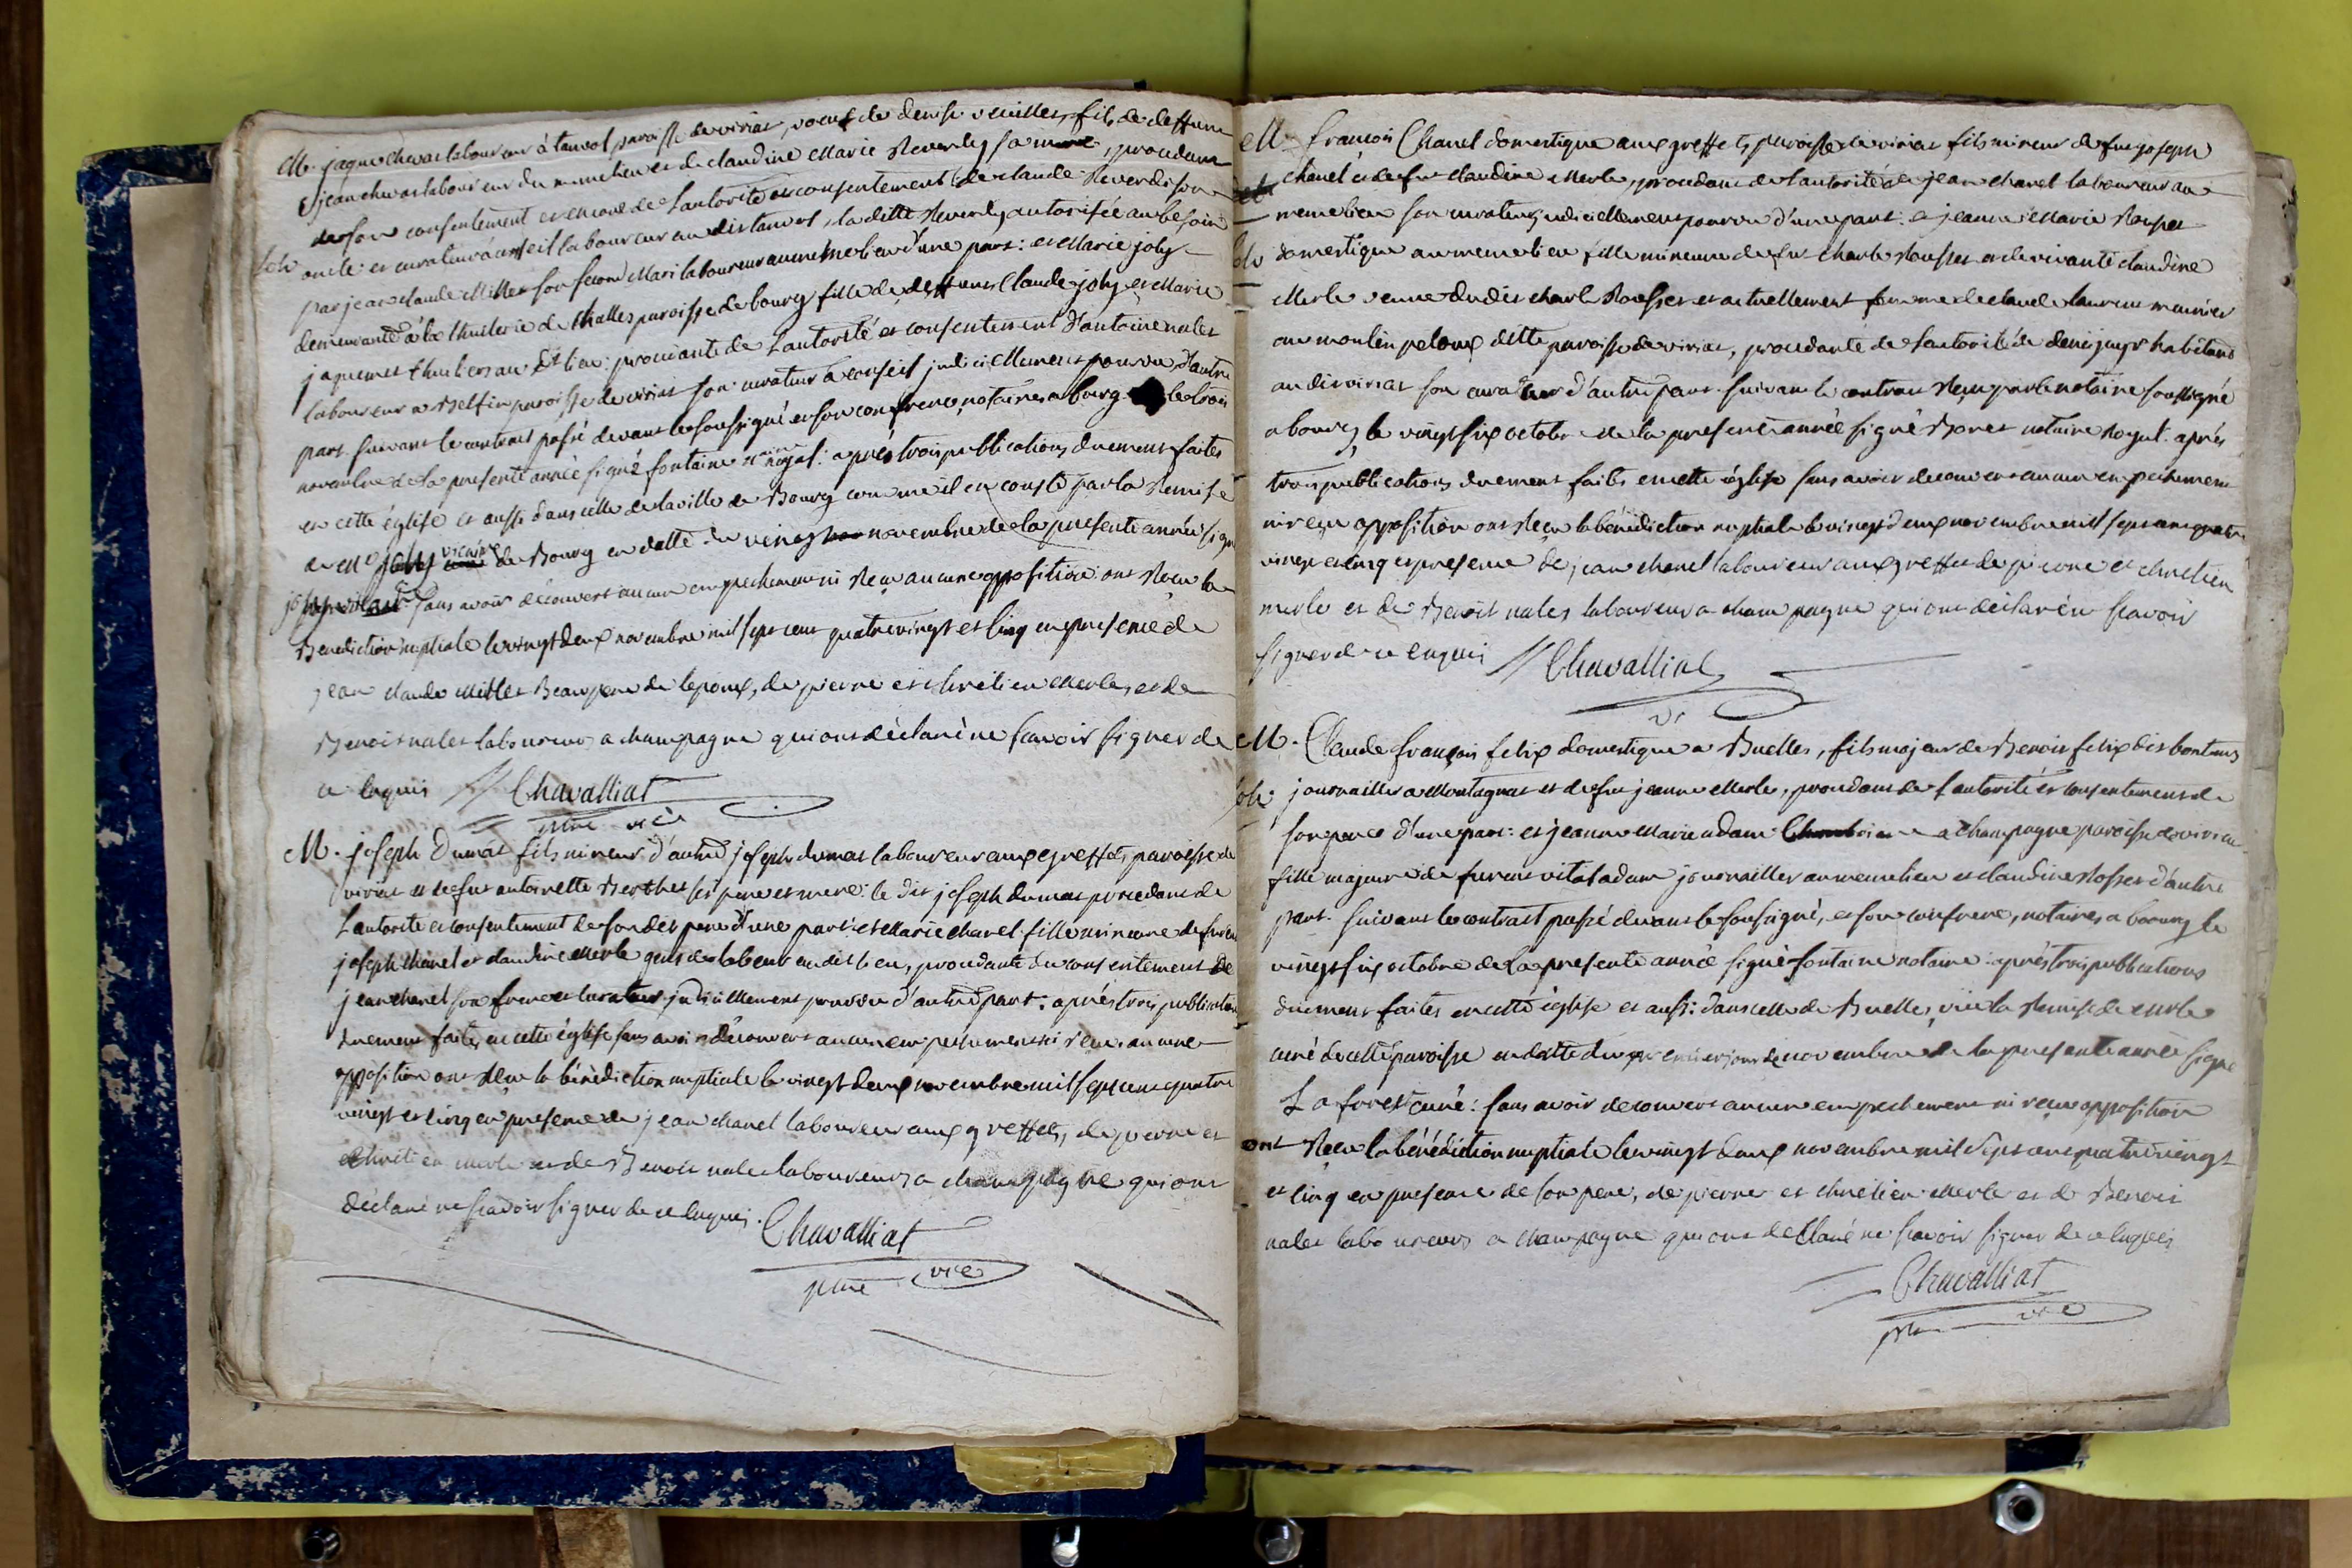 M. jaque chevat laboureur à tanvol paroisse de viriat, voeuf de denise veuillet, fils de deffunt
jean chevat laboureur du meme lieu et de claudine Marie Reverdy sa mere, procedant
de son consentement et encore de l'autorité et consentement de claude Reverdi son
oncle et curateur à conseil laboureur au dis tanvol, la ditte Reverdy autorisée au besoin
par jean claude Millet son second Mari laboureur au meme lieu d'une part: et Marie joly
demeurante à la thuilerie de Challes paroisse de bourg fille de deffunts Claude joly et Marie
jaquemet thuiliers au dit lieu: procédante de l'autorité et consentement d'antoine nalet
laboureur a paroisse de viriat son curateur à conseil judiciellement pourvu d'autre
part. suivant le contract passé devant le soussigné et son confrere notaires a bourg le trois
novembre de la presente année signé fontaine nre royal: après trois publications duement faites
en cette église et aussi dans celle de la ville de Bourg comme il en conste par la Remise
de Mr vicaire de Bourg en datte du vingt novembre de la presente année signé
sans avoir découvert aucun empechement ni Reçu aucune opposition ont Reçu la
Benediction nuptiale le vingt deux novembre mil sept cent quatre vingt et cinq en presence de
jean claude Millet Beaupere de l'epoux, de pierre et chretien Merle, et de
Benoit nalet laboureurs a champagne qui ont déclaré ne scavoir signer de
ce enquis Chavalliat
ptre vic
M. joseph dumas fils mineur d'autre joseph dumas laboureur aux greffets, paroisse de
viriat et de fue antoinette Berthet ses pere et mere: le dit joseph dumas procedant de
l'autorité et consentement de son dit pere d'une part: et Marie chanel fille mineure de furent
joseph chanel et claudine Merle gens de labeur au dit lieu, procedante du consentement de
jean chanel son frere et curateur judiciellement pourvu d'autre part: après trois publications
duement faites en cette église sans avoir découvert aucun empechement ni reçu aucune
opposition ont Reçu la bénédiction nuptiale le vingt deux novembre mil sept cent quatre
vingt et cinq en presence de jean chanel laboureur aux greffets, de pierre et
chretien merle et de Benoit nalet laboureurs a champagne qui ont
declaré ne scavoir signer de ce enquis. Chavalliat
ptre vic
M. francois Chanel domestique aux greffets, paroisse de viriat fils mineur de fu joseph
chanel et de fue claudine Merle, procedant de l'autorité de jean chanel laboureur au
meme lieu son curateur judiciellement pourvu d'une part: et jeanne Marie Rousset
domestique au meme lieu fille mineure de fut charle Rousset et de vivante claudine
Merle veuve du dit charle Rousset et actuellement femme de claude laurent meunier
au moulin peloux ditte paroisse de viriat, procedante de l'autorité de habitant
au dis viriat son curateur d'autre part. suivant le contrat Reçu par le notaire soussigné
a bourg le vingt six octobre de la presente année signé Boret notaire Royal. après
trois publications duement faites en cette église sans avoir decouvert aucun empechement
ni reçu opposition ont Reçu la bénédiction nuptiale le vingt deux novembre mil sept cent quatre
vingt et cinq en presence de jean chanel laboureur aux greffets de pierre et chretien
merle et de Benoit nalet laboureurs a champagne qui ont déclaré ne scavoir
signer de ce enquis Chavalliat
M. Claude françois felix domestique a Buelles, fils majeur de Benoit felix dit bontems
journaillier a Montagnat et de fue jeanne Merle, procedant de l'autorité et consentement de
son pere d'une part: et jeanne Marie adam a champagne paroisse de viriat
fille majeure de furent vital adam journaillier au meme lieu et claudine Rosset d'autre
part. suivant le contract passé devant le soussigné, et son confrere, notaires a bourg le
vingt six octobre de la presente année signé fontaine notaire: après trois publications
duement faites en cette église et aussi dans celle de Buelles, vû la Remise de Mr le
curé de cette paroisse en datte du premier jour de novembre de la presente année signé
Laforest curé: sans avoir decouvert aucun empechement ni reçu opposition
ont Reçu la bénédiction nuptiale le vingt deux novembre mil sept cent quatre vingt
et cinq en presence de son pere, de pierre et chretien Merle et de Benoit
nalet laboureurs a champagne qui ont declaré ne scavoir signer de ce enquis
Chavalliat
ptre vic